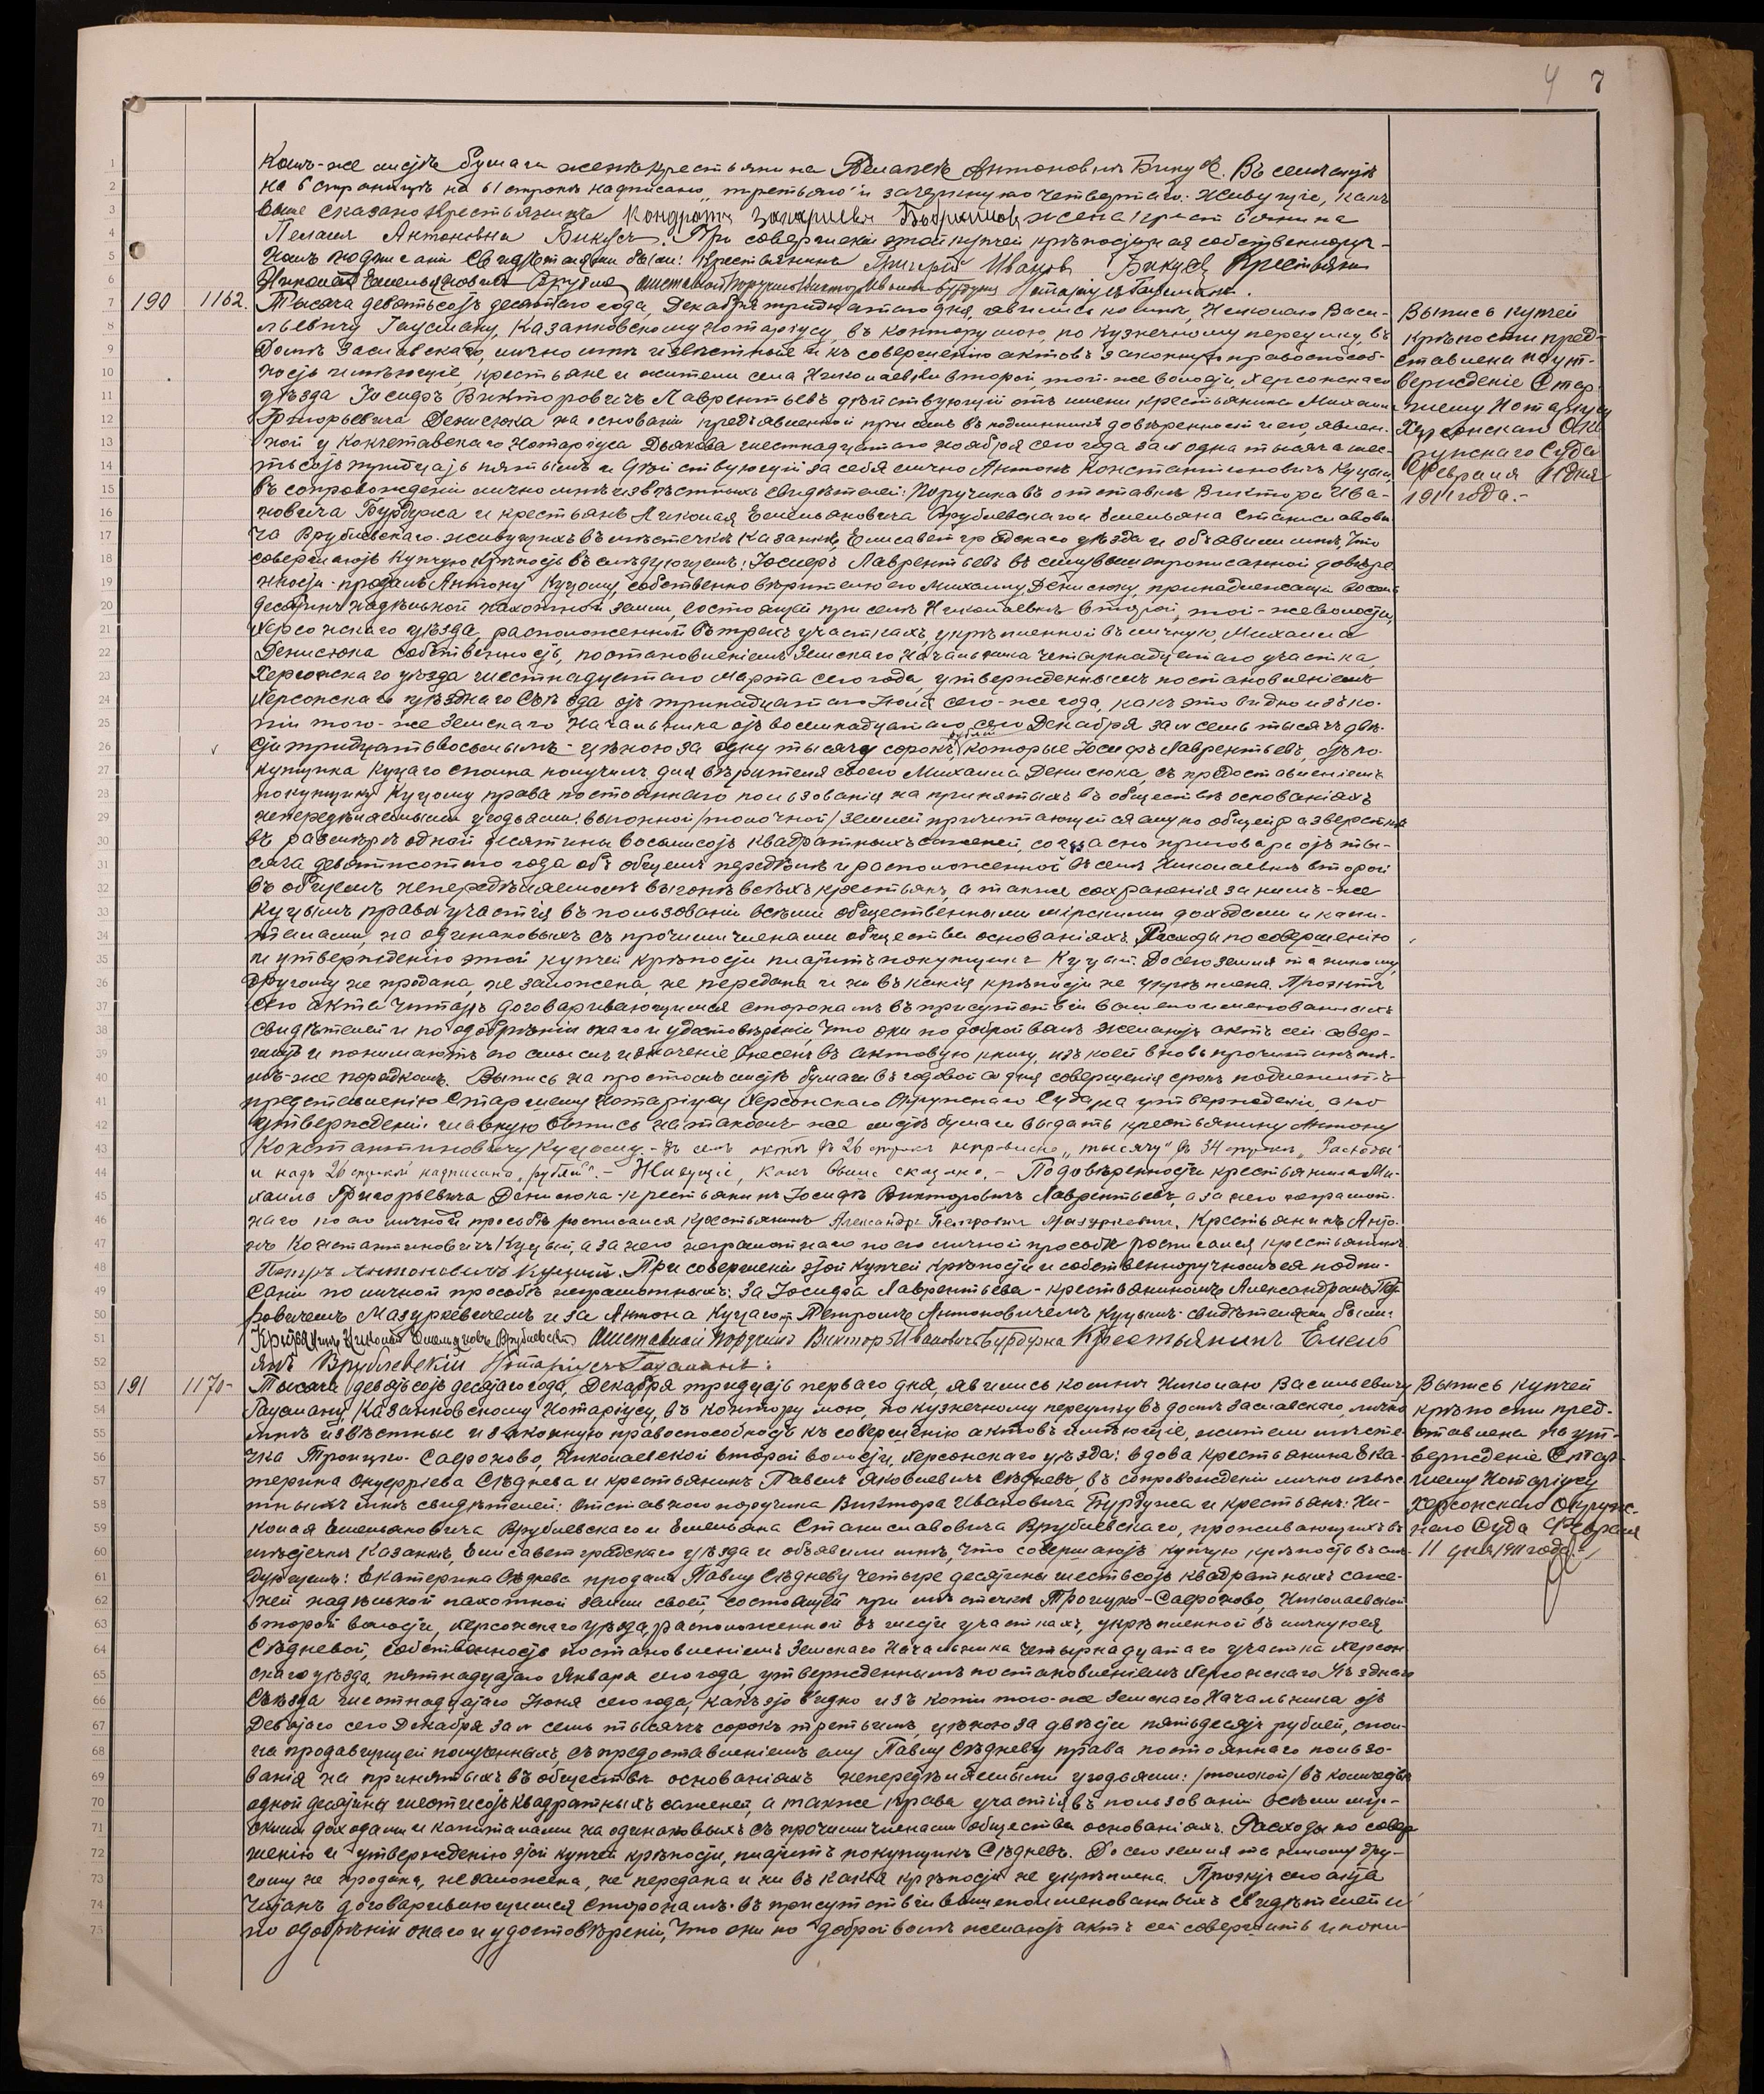 4 7
комъ-же листѣ бумаги женѣ крестьянина Пелагеѣ Антоновнѣ Бикусъ. Въ семъ актѣ
на 6 страницѣ на 61 строкѣ надписано „третьяго" и зачеркнуто четвертаго. Живущіе, какъ
выше сказано Крестьянинъ Кондратъ Захаріевъ жена крестьянина
Пелагея Антоновна Бикусъ. При совершеніи этой купчей крѣпости и ея собственноруч-
номъ подписаніи свидѣтелями были: Крестьянинъ Григорій Ивановъ Бикусъ Крестьянинъ
Николай Емельяновичъ отставной Поручикъ Викторъ Ивановъ Бурдужа Нотаріусъ Гаусманъ.
190 1162. Тысяча девятьсотъ десятаго года, Декабря тридцатаго дня, явились ко мнѣ, Николаю Васи-
льевичу Гаусману, Казанковскому Нотаріусу, въ контору мою, по Кузнечному переулку, въ
домѣ Заславскаго, лично мнѣ извѣстные и къ совершенію актовъ законную правоспособ-
ность имѣющіе, крестьяне и жители села Николаевки второй, той-же волости, Херсонскаго
уѣзда Іосифъ Викторовичъ Лаврентьевъ дѣйствующій отъ имени крестьянина Михаила
Григорьевича Денисюка на основаніи предъявленной при семъ въ подлинникѣ довѣренности его, явлен-
ной у Кокчетавскаго Нотаріуса Дьякова шестнадцатаго ноября сего года за № одна тысяча шес-
тьсотъ тридцать пятымъ и дѣйствующій за себя лично Антонъ Константиновичъ Куцый,
въ сопровожденіи лично мнѣ извѣстныхъ свидѣтелей: Поручика въ отставкѣ Виктора Ива-
новича Бурдужа и крестьянъ Николая Емельяновича Врублевскаго и Емельяна Станиславови-
ча Врублевскаго, живущихъ въ мѣстечкѣ Казанкѣ, Елисаветградскаго уѣзда и объявили мнѣ, что
совершаютъ купчую крѣпость въ слѣдующемъ: Іосифъ Лаврентьевъ въ силу вышепрописанной довѣре-
нности продалъ Антону Куцому, собственно вѣрителю его Михаилу Денисюку, принадлежащіе восемь
десятинъ надѣльной пахотной земли, состоящей при селѣ Николаевкѣ второй, той-же волости,
Херсонскаго уѣзда, расположенной въ трехъ участкахъ, укрѣпленной въ личную, Михаила
Денисюка собственность, постановленіемъ Земскаго Начальника четырнадцатаго участка,
Херсонскаго уѣзда шестнадцатаго Марта сего года, утвержденнымъ постановленіемъ
Херсонскаго уѣзднаго Съѣзда отъ тринадцатаго Іюля сего-же года, какъ это видно изъ ко-
піи того-же Земскаго Начальника отъ восемнадцатаго сего Декабря за № семь тысячъ двѣ-
сти тридцать восьмымъ - цѣною за одну тысячу сорокъ рублей, которые Іосифъ Лаврентьевъ, отъ по-
купщика Куцаго сполна получилъ для вѣрителя своего Михаила Денисюка, съ предоставленіемъ
покупщику Куцому права постояннаго пользованія на принятыхъ въ обществѣ основаніяхъ
непередѣляемыми угодьями: выгонной /толочной/ землей причитающейся ему по общей разверсткѣ
въ размѣрѣ одной десятины восьмисотъ квадратныхъ саженей, согласно приговора отъ ты-
сяча девятисотаго года объ общемъ передѣлѣ и расположенной въ селѣ Николаевкѣ второй
въ общемъ непередѣляемомъ выгонѣ всѣхъ крестьянъ, а также сохраненія за нимъ-же
Куцымъ права участія въ пользованіи всѣми общественными мірскими доходами и капи-
талами, на одинаковыхъ съ прочими членами общества основаніяхъ. Расходы по совершенію
и утвержденію этой купчей крѣпости платитъ покупщикъ Куцый. До сего земля та никому
другому не продана, не заложена, не передана и ни въ какія крѣпости не укрѣплена. Проэктъ
сего акта читанъ договаривающимся сторонамъ въ присутствіи вышепоименованныхъ
свидѣтелей и по одобреніи онаго и удостовѣреніи, что они по доброй волѣ желаютъ актъ сей совер-
шить и понимаютъ его смыслъ и значеніе, внесенъ въ актовую книгу, изъ коей вновь прочитанъ тѣ-
мъ-же порядкомъ. Выпись на простомъ листѣ бумаги въ годовой со дня совершенія срокъ подлежитъ
представленію Старшему Нотаріусу Херсонскаго Окружнаго Суда на утвержденіе, а по
утвержденіи главную выпись на такомъ-же листѣ бумаги выдать крестьянину Антону
Константиновичу Куцому. - Въ семъ актѣ въ 26 строкѣ исправлено „тысячу" въ 34 строкѣ „Расходы"
и надъ 26 строкой надписано „рублей". - Живущіе, какъ выше сказано. - По довѣренности крестьянина Ми-
хаила Григорьевича Денисюка - крестьянинъ Іосифъ Викторовичъ Лаврентьевъ, а за него неграмот-
наго по его личной просьбѣ росписался Крестьянинъ Александръ Петровичъ Мазуркевичъ. Крестьянинъ Анто-
нъ Константиновичъ Куцый, а за него неграмотнаго по его личной просьбѣ росписался крестьянинъ
Петръ Антоновичъ Куцый. При совершеніи этой купчей крѣпости и собственноручномъ ея подпи-
саніи по личной просьбѣ неграмотныхъ: за Іосифа Лаврентьева - крестьяниномъ Александромъ Пет-
ровичемъ Мазуркевичемъ и за Антона Куцаго Петромъ Антоновичемъ Куцымъ - свидѣтелями были:
Крестьянинъ Николай Емельяновъ Врублевскій Отставной поручикъ Викторъ Ивановичъ Бурдужа Крестьянинъ Емель
янъ Врублевскій Нотаріусъ Гаусманъ.
Выпись купчей
крѣпости пред-
ставлена на ут-
вержденіе Стар-
шему Нотаріусу
Херсонскаго Ок-
ружнаго Суда
Февраля 11 дня
1911 года.-
191 1170- Тысяча девятьсотъ десятаго года, Декабря тридцать перваго дня, явились ко мнѣ Николаю Васильевичу
Гаусману, Казанковскому Нотаріусу, въ контору мою, по кузнечному переулку въ домѣ Заславскаго, лично
мнѣ извѣстные и законную правоспособность къ совершенію актовъ имѣющіе, жители мѣсте-
чка Троицко-Сафоново, Николаевской второй волости, Херсонскаго уѣзда: вдова крестьянина Ека-
терина Онуфріева Слѣднева и крестьянинъ Павелъ Яковлевичъ Слѣдневъ, въ сопровожденіи лично извѣс-
тныхъ мнѣ свидѣтелей: Отставного поручика Виктора Ивановича Бурдужа и крестьянъ: Ни-
колая Емельяновича Врублевскаго и Емельяна Станиславовича Врублевскаго, проживающихъ въ
мѣстечкѣ Казанкѣ, Елисаветградскаго уѣзда и объявили мнѣ, что совершаютъ купчую крѣпость въ слѣ-
дующемъ: Екатерина Слѣднева продала Павлу Слѣдневу четыре десятины шестьсотъ квадратныхъ саже-
ней надѣльной пахотной земли своей, состоящей при мѣстечкѣ Троицко-Сафоново, Николаевской
второй волости, Херсонскаго уѣзда, расположенной въ шести участкахъ, укрѣпленной въ личную ея,
Слѣдневой, собственность постановленіемъ Земскаго Начальника четырнадцатаго участка Херсон-
скаго уѣзда, пятнадцатаго Января сего года, утвержденнымъ постановленіемъ Херсонскаго Уѣзднаго
Съѣзда шестнадцатаго Іюня сего года, какъ это видно изъ копіи того-же Земскаго Начальника отъ
Девятаго сего Декабря за № семь тысячъ сорокъ третьимъ, цѣною за двѣсти пятьдесятъ рублей, спол-
на продавщицей полученныхъ, съ предоставленіемъ ему Павлу Слѣдневу права постояннаго пользо-
ванія на принятыхъ въ обществѣ основаніяхъ непередѣляемыми угодьями: /толокой/ въ количествѣ
одной десятины шестисотъ квадратныхъ саженей, а также права участія въ пользованіи всѣми мір-
скими доходами и капиталами на одинаковыхъ съ прочими членами общества основаніяхъ. Расходы по совер-
шенію и утвержденію этой купчей крѣпости, платитъ покупщикъ Слѣдневъ. До сего земля та никому дру-
гому не продана, не заложена, не передана и ни въ какія крѣпости не укрѣплена. Проэктъ сего акта
читанъ договаривающимся сторонамъ въ присутствіи вышепоименованныхъ свидѣтелей и
по одобреніи онаго и удостовѣреніи, что они по доброй волѣ желаютъ актъ сей совершить и пони-
Выпись купчей
крѣпости пред-
ставлена на ут-
вержденіе Стар-
шему Нотаріусу
Херсонскаго Окруж-
наго Суда Февраля
11 дня 1911 года.-